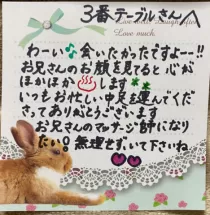 3番テーブルさんへ
Love much.
わーい♪会いたかったですよーー!!
お兄さんのお顔を見てると心が
ほかほか♨します**
いつもお忙しい中足を運んでくだ
さってありがとうございます
お兄さんのマッサージ師になり
たい。無理せず、いて下さいね